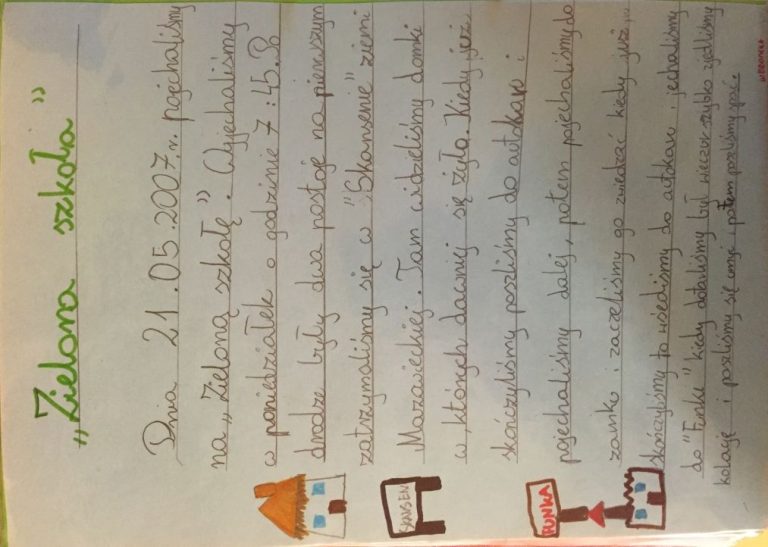 „Zielona szkoła”
Dnia 21.05.2007.r. pojechaliśmy
na „Zieloną szkołę”. Wyjechaliśmy
w poniedziałek o godzinie 7:45. Po
drodze były dwa postoje na pierwszym
zatrzymaliśmy się w "Skansenie" ziemi
Mazowieckiej. Tam widzieliśmy domki
w których dawniej się żyło. Kiedy już
skończyliśmy poszliśmy do autokaru i
pojechaliśmy dalej, potem pojechaliśmy do
zamku i zaczeliśmy go zwiedzać kiedy już
skończyliśmy to wsiedliśmy do autokaru i jechaliśmy
do "Funki" kiedy dotarliśmy był wieczór szybko zjedliśmy
kolację i poszliśmy się umyć i potem poszliśmy spać.
SKANSEN
FUNKA